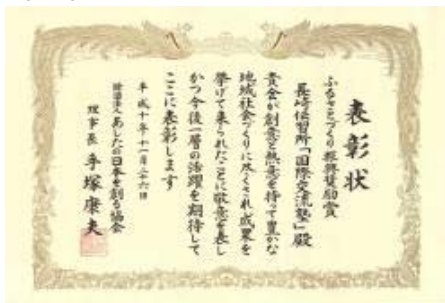 表彰状
ふるさとづくり振興奨励賞
長崎伝習所「国際交流塾」殿
貴会が創意と熱意を持って豊かな
地域社会づくりに尽くされ成果を
挙げて来られたことに敬意を表し
かつ今後一層の活躍を期待して
ここに表彰します
平成十年十一月二十六日
財団法人あしたの日本を創る協会
理事長 手塚康夫